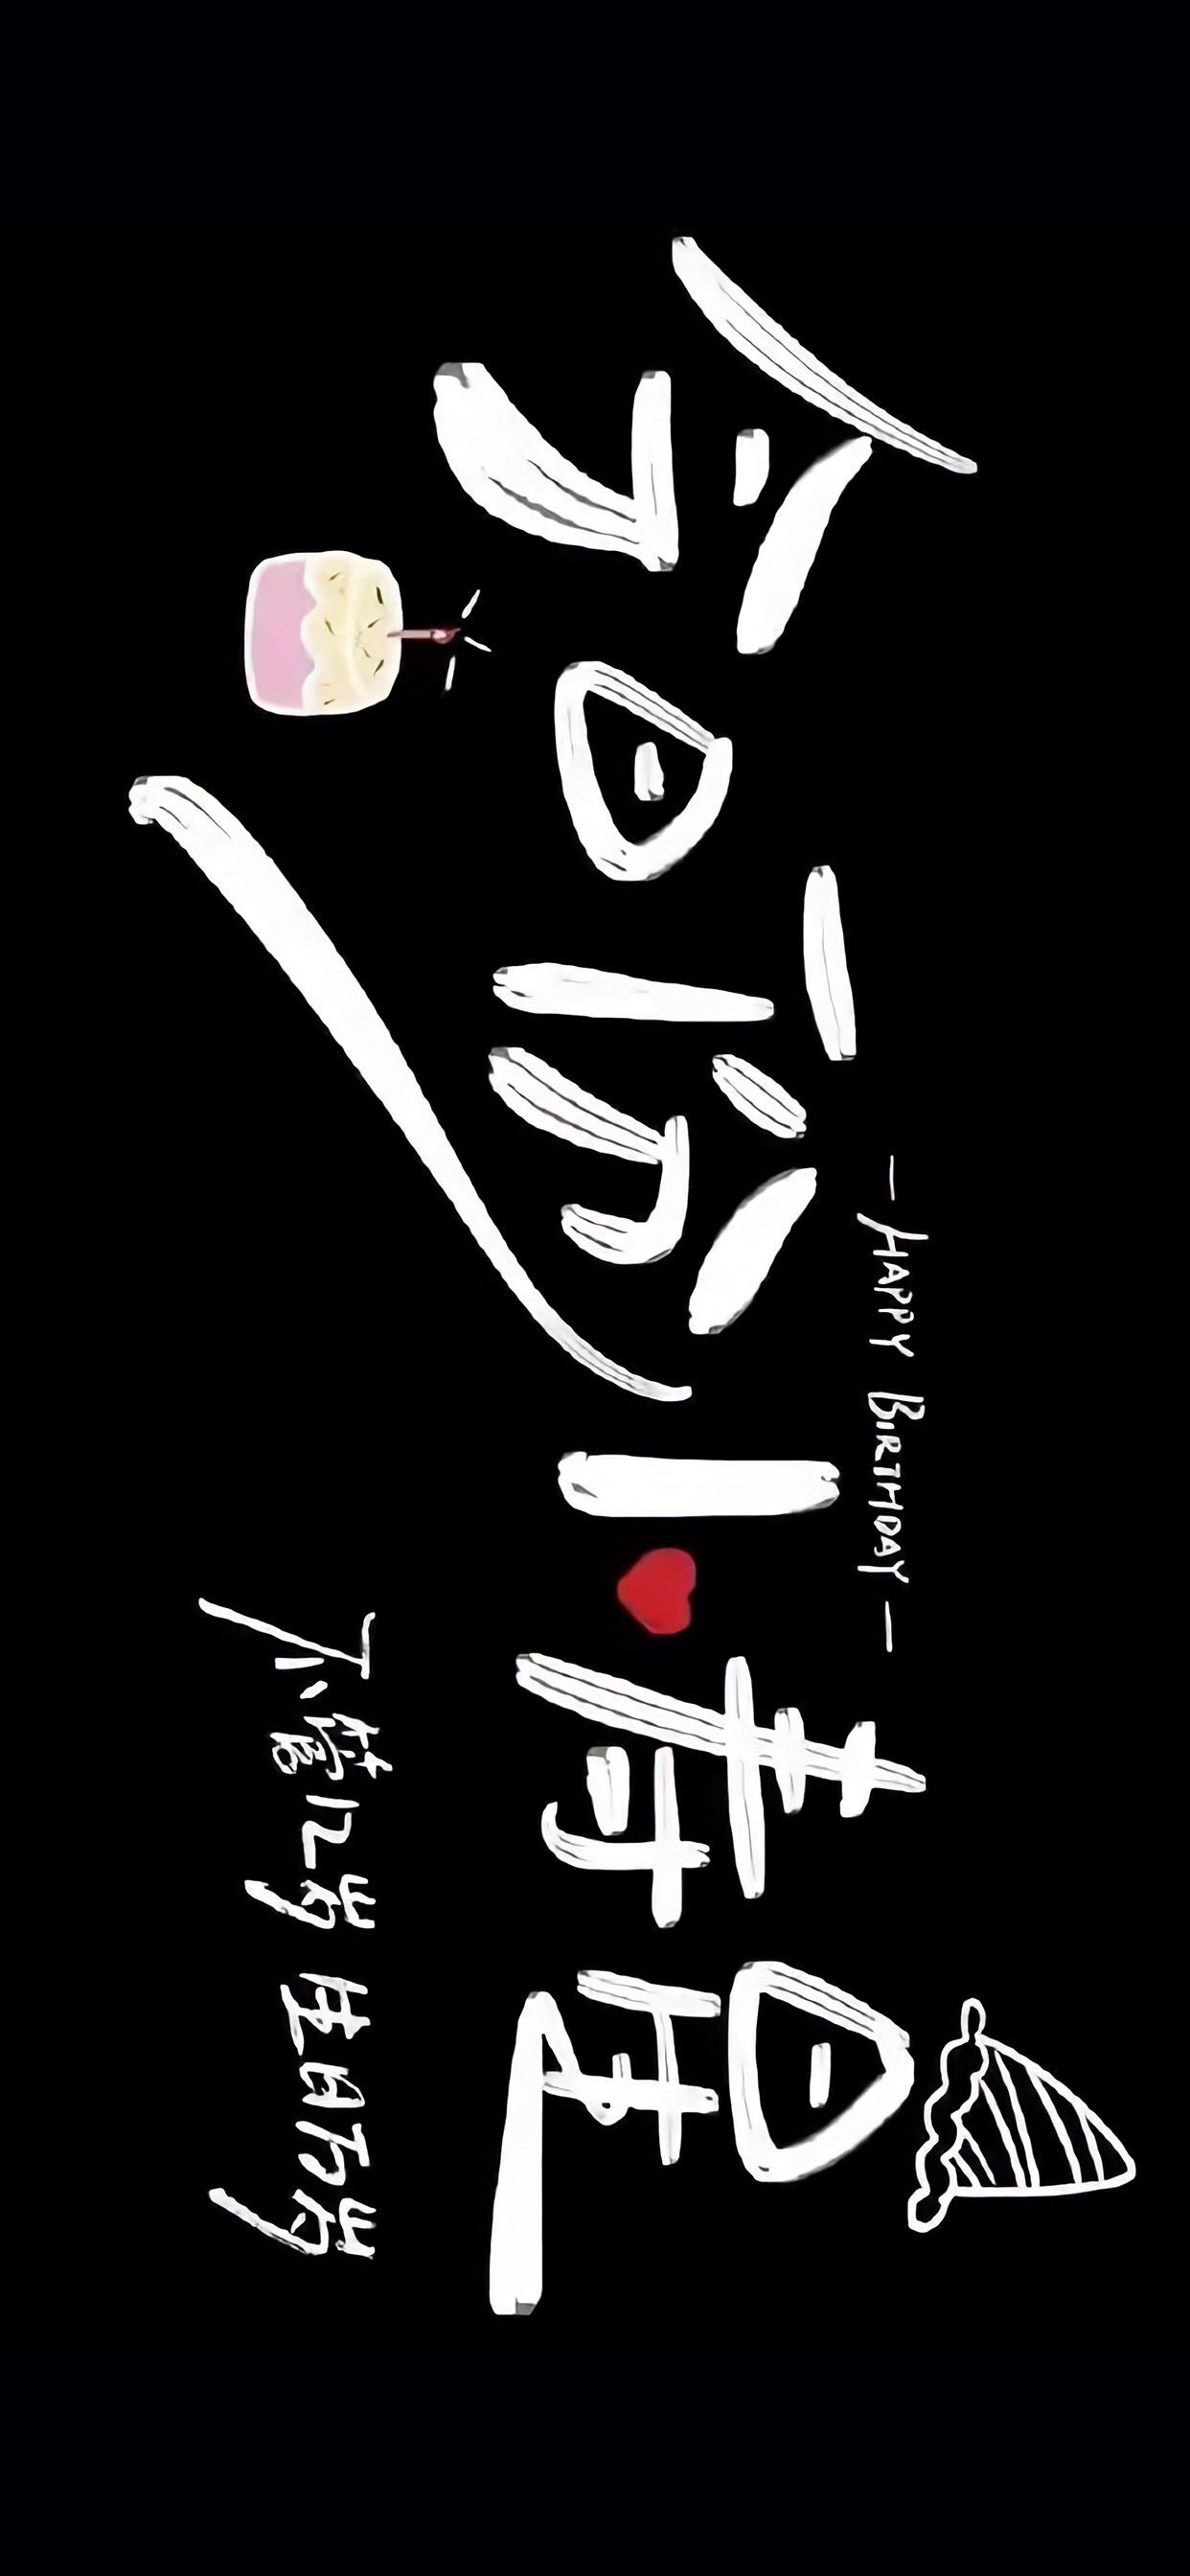 — HAPPY BIRTHDAY —
今日份小寿星
不管几岁 生日万岁